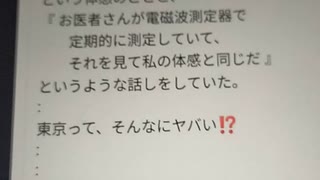 という体感のときと、
『 お医者さんが電磁波測定器で
定期的に測定していて、
それを見て私の体感と同じだ 』
というような話しをしていた。
:
東京って、そんなにヤバい⁉
:
: